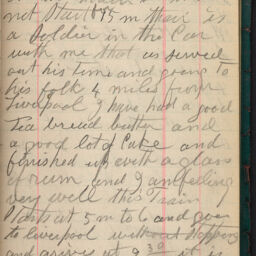 not Start
a Soldier in the Car
with me that as served
out his time and going to
his folk 4 miles from
Liverpool I have had a good
Tea bread butter and
a good lot of Cake and
finished up with a glass
of rum and I am feeling
very well this Train
Starts at 5 m to 6 and goes
to Liverpool without stopping
and arrives at 9 30 it is